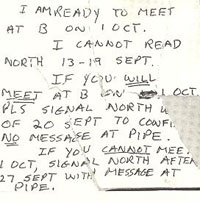 I AM READY TO MEET
AT B ON 1 OCT.
I CANNOT READ
NORTH 13-19 SEPT.
IF YOU WILL
MEET AT B ON 1 OCT
PLS SIGNAL NORTH W
OF 20 SEPT TO CONFI
NO MESSAGE AT PIPE.
IF YOU CANNOT MEE
1 OCT, SIGNAL NORTH AFTER
27 SEPT WITH MESSAGE AT
PIPE.